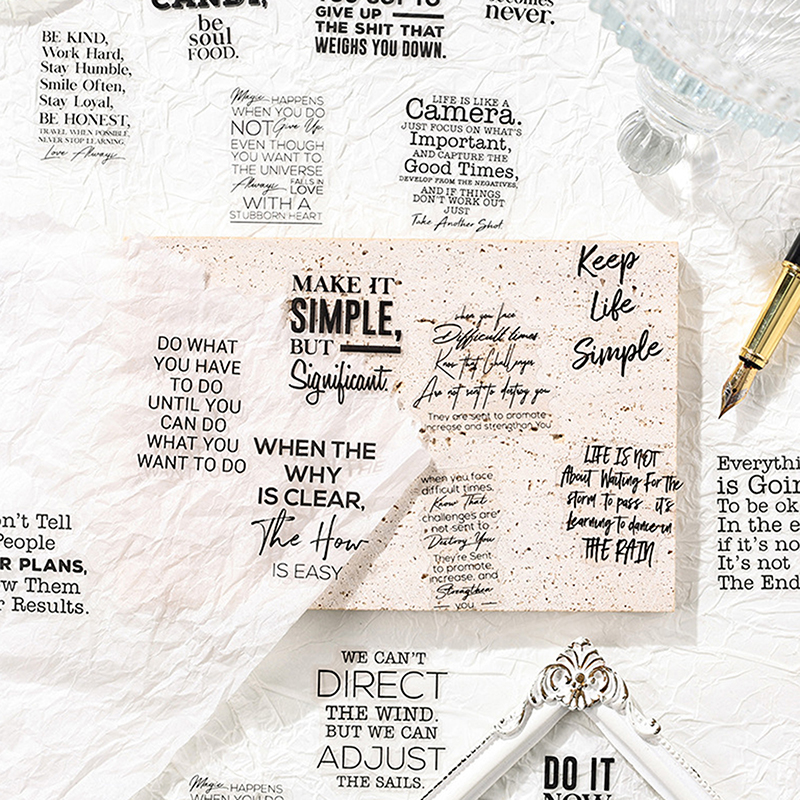 CANDY,
be
soul
FOOD.
GIVE UP
THE SHIT THAT
WEIGHS YOU DOWN.
becomes
never.
BE KIND,
Work Hard,
Stay Humble,
Smile Often,
Stay Loyal,
BE HONEST,
TRAVEL WHEN POSSIBLE,
NEVER STOP LEARNING,
Love Always
Magic HAPPENS
WHEN YOU DO
NOT Give Up.
EVEN THOUGH
YOU WANT TO.
THE UNIVERSE
Always FALLS IN
LOVE
WITH A
STUBBORN HEART
LIFE IS LIKE A
Camera.
JUST FOCUS ON WHAT'S
Important,
AND CAPTURE THE
Good Times,
DEVELOP FROM THE NEGATIVES,
AND IF THINGS
DON'T WORK OUT
JUST
Take Another Shot.
MAKE IT
SIMPLE,
BUT
Significant.
when you face
Difficult times
Know that Challenges
Are not sent to destroy you
They are sent to promote
increase and strengthen You
Keep
Life
Simple
DO WHAT
YOU HAVE
TO DO
UNTIL YOU
CAN DO
WHAT YOU
WANT TO DO
WHEN THE
WHY
IS CLEAR,
The How
IS EASY
when you face
difficult times.
Know That
challenges are
not sent to
Destroy You
They're Sent
to promote,
increase, and
Strengthen
you
LIFE IS NOT
About Waiting for the
storm to pass it's
learning to dance in
THE RAIN
Everythi
is Goin
To be ok
In the e
if it's no
It's not
The End
n't Tell
People
R PLANS,
w Them
r Results.
WE CAN'T
DIRECT
THE WIND.
BUT WE CAN
ADJUST
THE SAILS.
Magic HAPPENS
WHEN YOU DO
DO IT
NOW